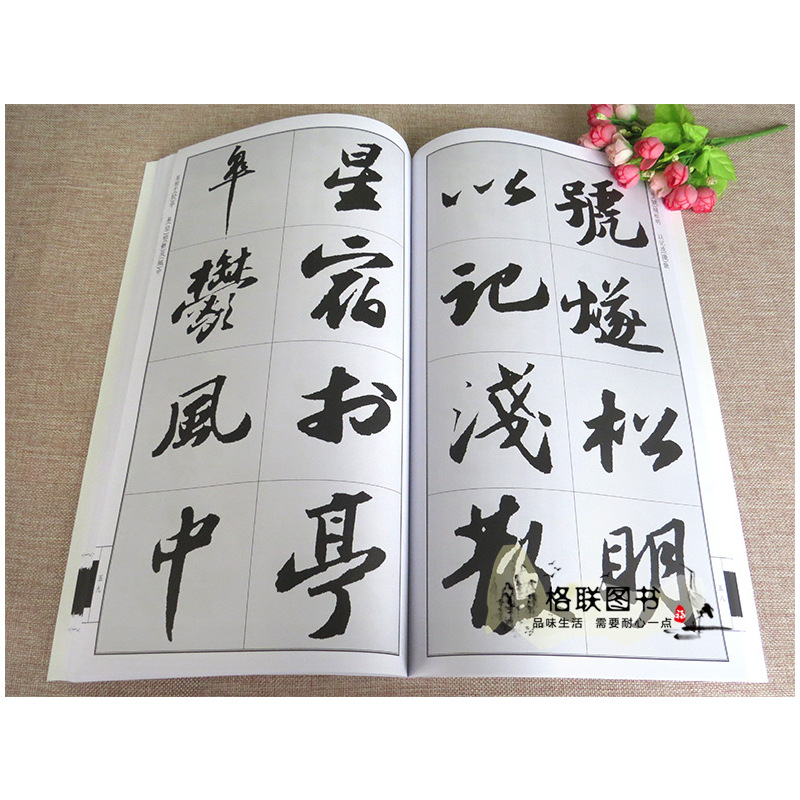 號燧松明
以記淺散
星宿於亭
皐鬱風中
五九
格联图书
品味生活 需要耐心一点